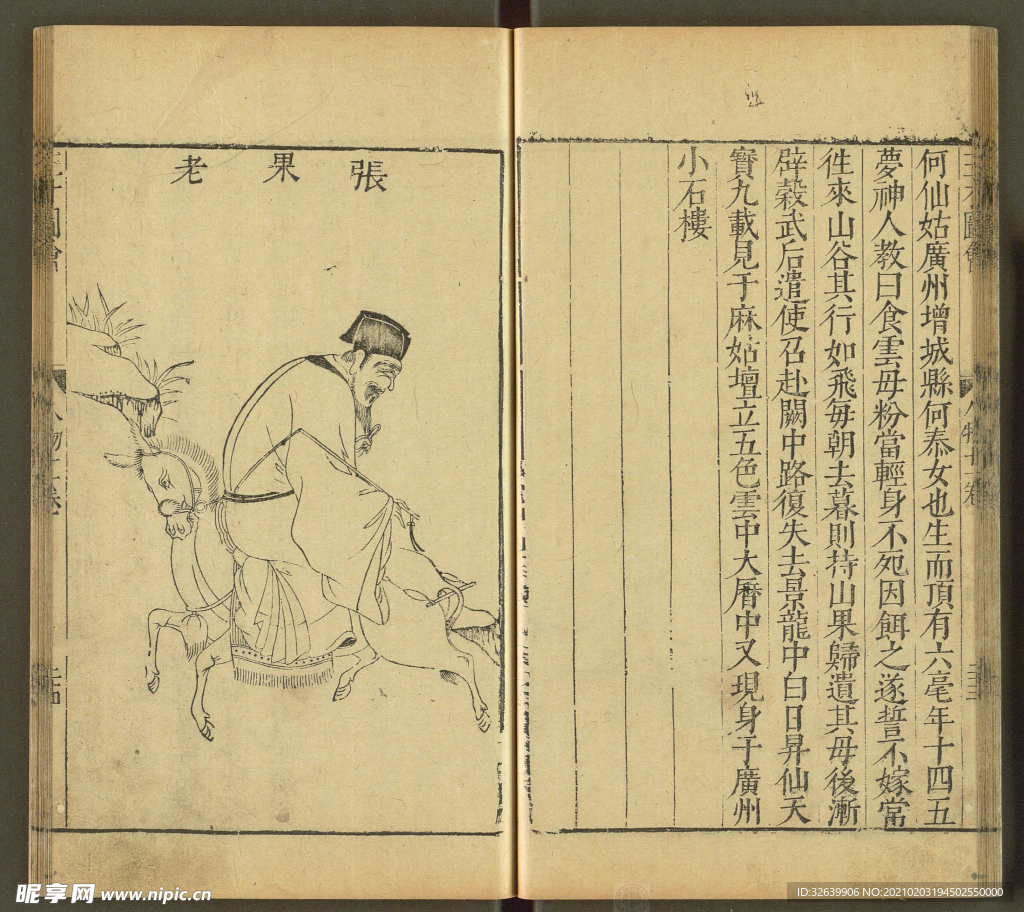 三才圖會
人物十一卷
何仙姑廣州增城縣何泰女也生而頂有六毫年十四五
夢神人教曰食雲母粉當輕身不死因餌之遂誓不嫁常
徃來山谷其行如飛每朝去暮則持山果歸遺其母後漸
辟穀武后遣使召赴闕中路復失去景龍中白日昇仙天
寶九載見于麻姑壇立五色雲中大曆中又現身于廣州
小石樓
張果老
昵享网 www.nipic.cn
ID:32639906 NO:20210203194502550000